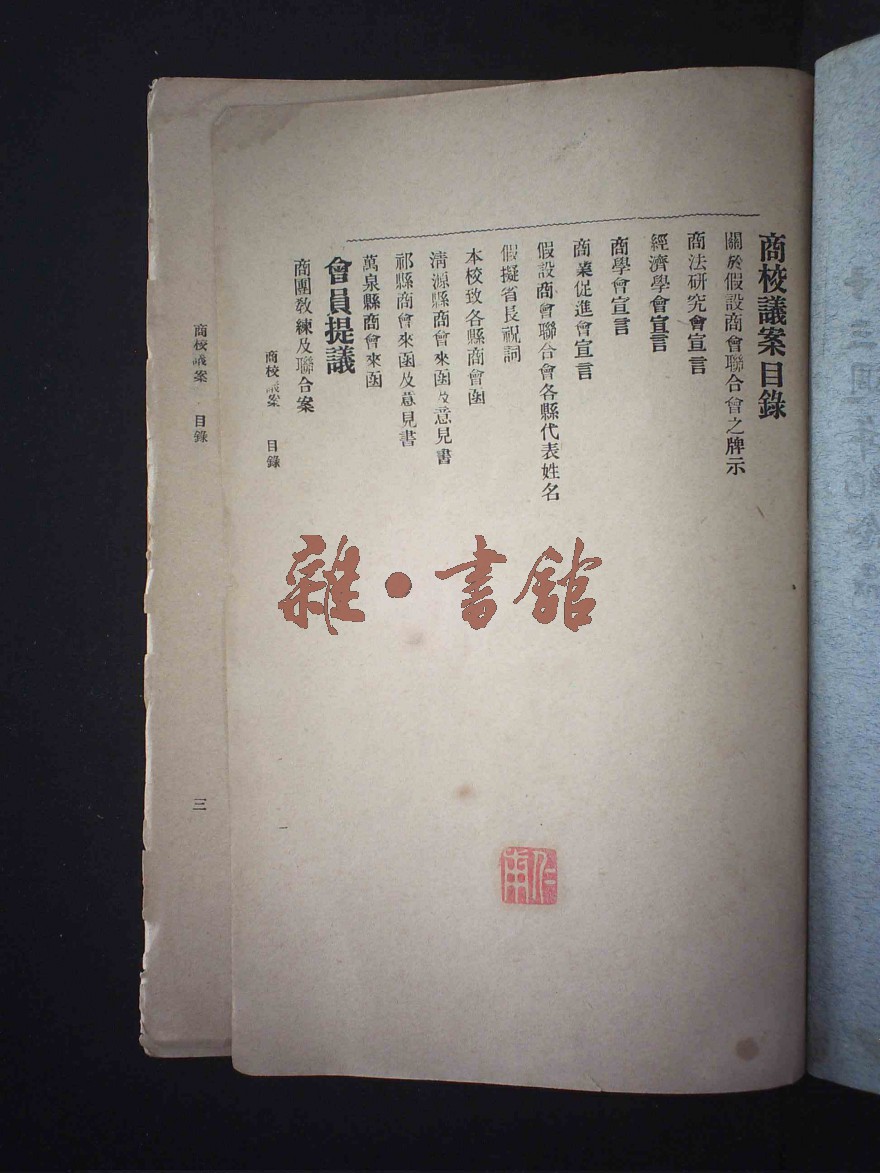 商校議案目錄
關於假設商會聯合會之牌示
商法研究會宣言
經濟學會宣言
商學會宣言
商業促進會宣言
假設商會聯合會各縣代表姓名
假擬省長祝詞
本校致各縣商會函
淸源縣商會來函及意見書
祁縣商會來函及意見書
萬泉縣商會來函
會員提議
商團敎練及聯合案
商校議案 目錄 一
商校議案 目錄 三
雜·書館